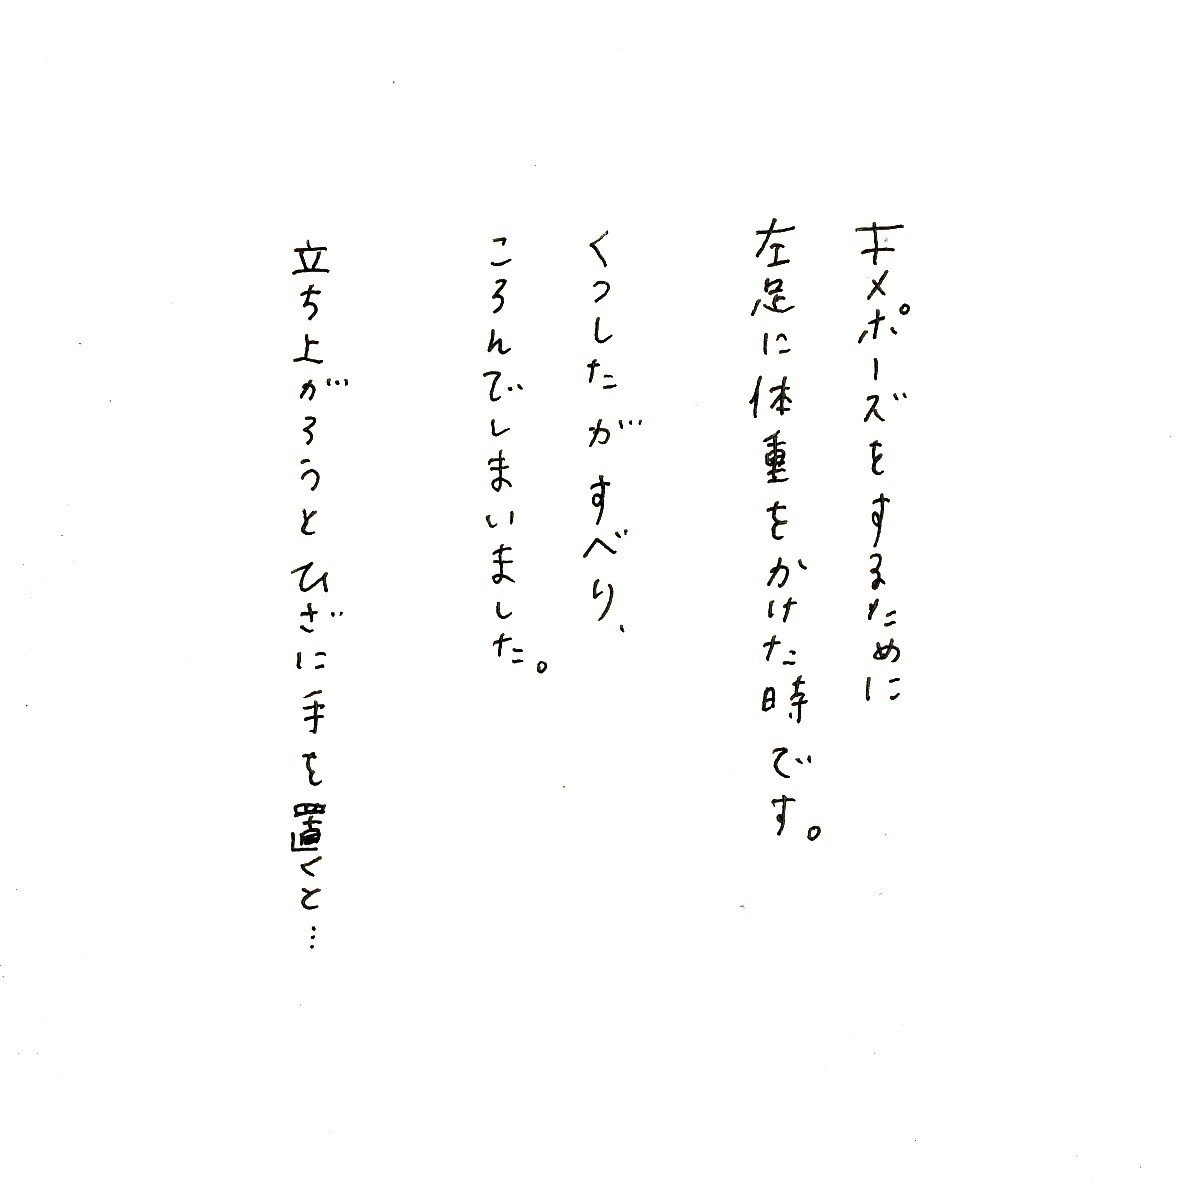 キメポーズをするために
左足に体重をかけた時です。
くつしたがすべり、
ころんでしまいました。
立ち上がろうとひざに手を置くと…